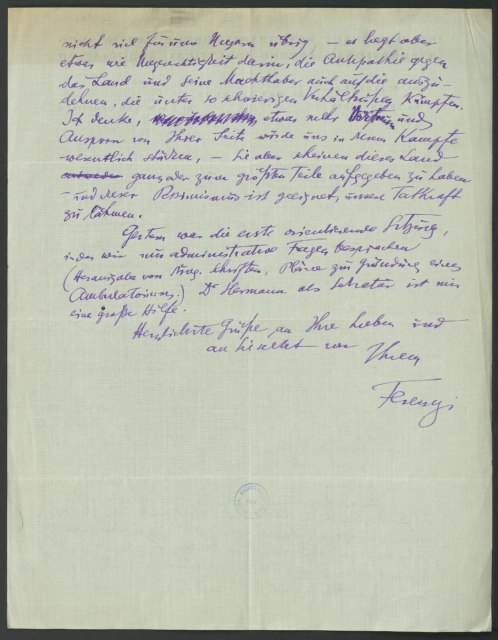 nicht viel für uns Ungarn übrig – es liegt aber
etwas wie Ungerechtigkeit darin, die Antipathie gegen
das Land und seine Machthaber auch auf die auszu-
dehnen, die unter so schwierigen Verhältnissen kämpfen.
Ich denke, etwas mehr Vertrauen und
Ansporn von Ihrer Seite würde uns in diesem Kampfe
wesentlich stärken, – Sie aber scheinen dieses Land
ganz oder zum größten Teile aufgegeben zu haben
– und dieser Pessimismus ist geeignet, unsere Tatkraft
zu lähmen.
Gestern war die erste orientierende Sitzung,
in der wir nur administrative Fragen besprachen
(Herausgabe von Ung. Schriften, Pläne zur Gründung eines
Ambulatoriums.) Dr Hermann als Sekretär ist mir
eine große Hilfe.
Herzlichste Grüße an Ihre Lieben und
an Sie selbst von Ihrem
Ferenczi